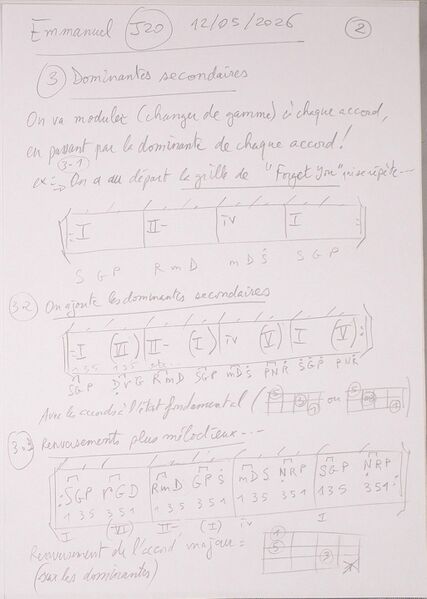 Emmanuel J20 12/05/2026 2
3 Dominantes secondaires
On va moduler (changer de gamme) à chaque accord,
en passant par la dominante de chaque accord!
3-1
ex: → On a au départ la grille de "Forget You" qui se répète...
I II- IV I
S G P R m D m D S S G P
3-2 On ajoute les dominantes secondaires
I (VI) II- (I) IV (V) I (V)
1 3 5 1 3 5 etc.
S G P D r G R m D S G P m D S P N R S G P P N R
Avec les accords à l'état fondamental ( ou
3-3 Renversements plus mélodieux...
S G P r G D R m D G P S m D S N R P S G P N R P
1 3 5 3 5 1 1 3 5 3 5 1 1 3 5 3 5 1 1 3 5 3 5 1
I (VI) II- (I) IV I
Renversement de l'accord majeur =
(sur les dominantes)